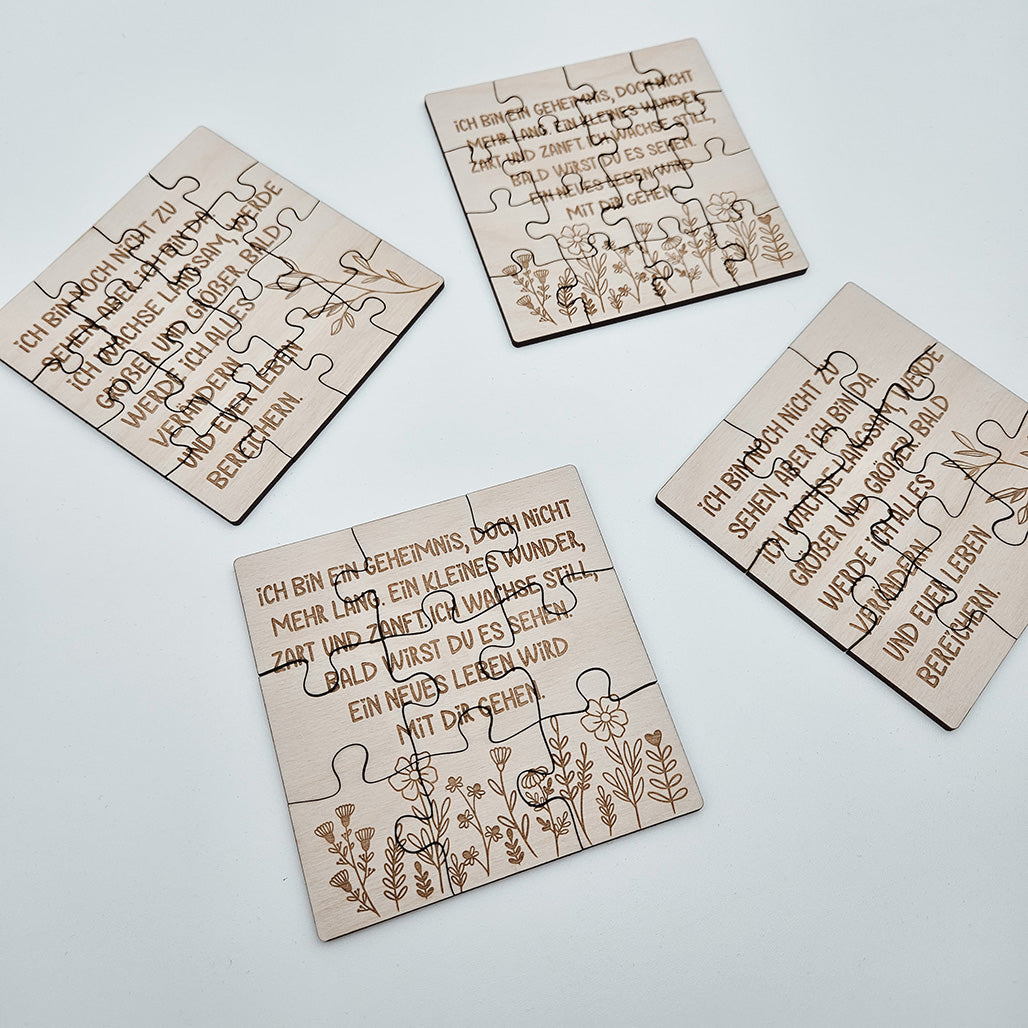 ICH BIN EIN GEHEIMNIS, DOCH NICHT
MEHR LANG. EIN KLEINES WUNDER,
ZART UND ZANFT. ICH WACHSE STILL,
BALD WIRST DU ES SEHEN.
EIN NEUES LEBEN WIRD
MIT DIR GEHEN.
ICH BIN NOCH NICHT ZU
SEHEN, ABER ICH BIN DA.
ICH WACHSE LANGSAM, WERDE
GRÖßER UND GRÖßER BALD
WERDE ICH ALLES
VERÄNDERN
UND EUER LEBEN
BEREICHERN.
ICH BIN NOCH NICHT ZU
SEHEN, ABER ICH BIN DA.
ICH WACHSE LANGSAM, WERDE
GRÖßER UND GRÖßER BALD
WERDE ICH ALLES
VERÄNDERN
UND EUER LEBEN
BEREICHERN.
ICH BIN EIN GEHEIMNIS, DOCH NICHT
MEHR LANG. EIN KLEINES WUNDER,
ZART UND ZANFT. ICH WACHSE STILL,
BALD WIRST DU ES SEHEN.
EIN NEUES LEBEN WIRD
MIT DIR GEHEN.